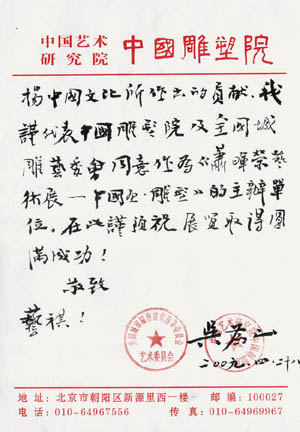 中国艺术
研究院
中國雕塑院
揚中國文化所作出的貢献.我
謹代表中國雕塑院及全國城
雕藝委會同意作為《蕭暉榮藝
術展一中國画·雕塑》的主辦單
位,在此謹預祝展覽取得圓
滿成功!
敬致
藝祺!
艺术委员会
吳為山
二00九.四.二十八
地址:北京市朝阳区新源里西一楼 邮编:100027
电话:010-64967556 传真:010-64969967